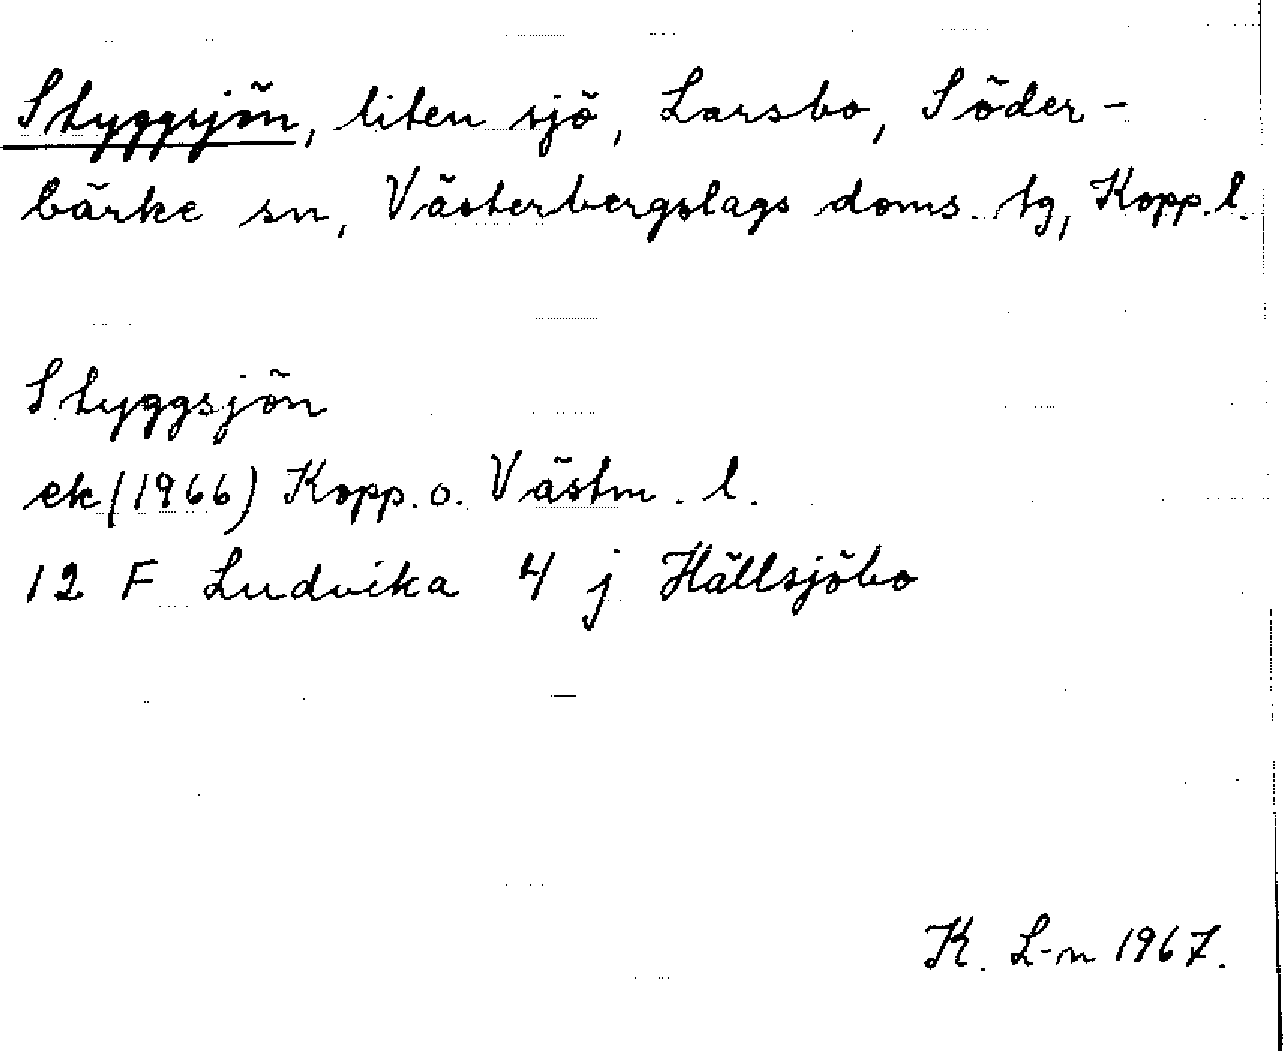 Styggsjön, liten sjö, Larsbo, Söder-
bärke sn, Västerbergslags doms. tg, Kopp. l.
Styggsjön
ek (1966) Kopp. o. Västm. l.
12 F Ludvika 4 j Hällsjöbo
K. L-n 1967.